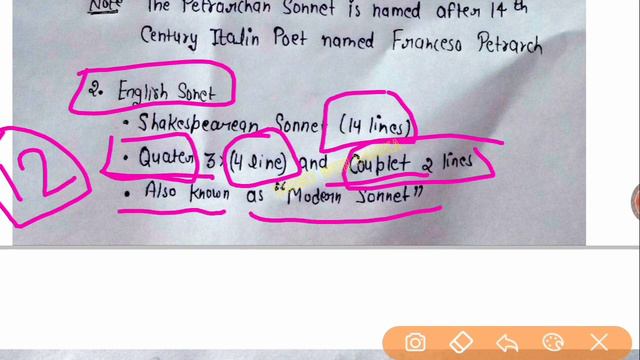 Note The Petrarchan Sonnet is named after 14th
Century Italin Poet named Franceso Petrarch
2. English Sonet
• Shakespearean Sonne (14 lines)
• Quater 3x (4 line) and Couplet 2 lines
• Also known as "Modern Sonnet"
12